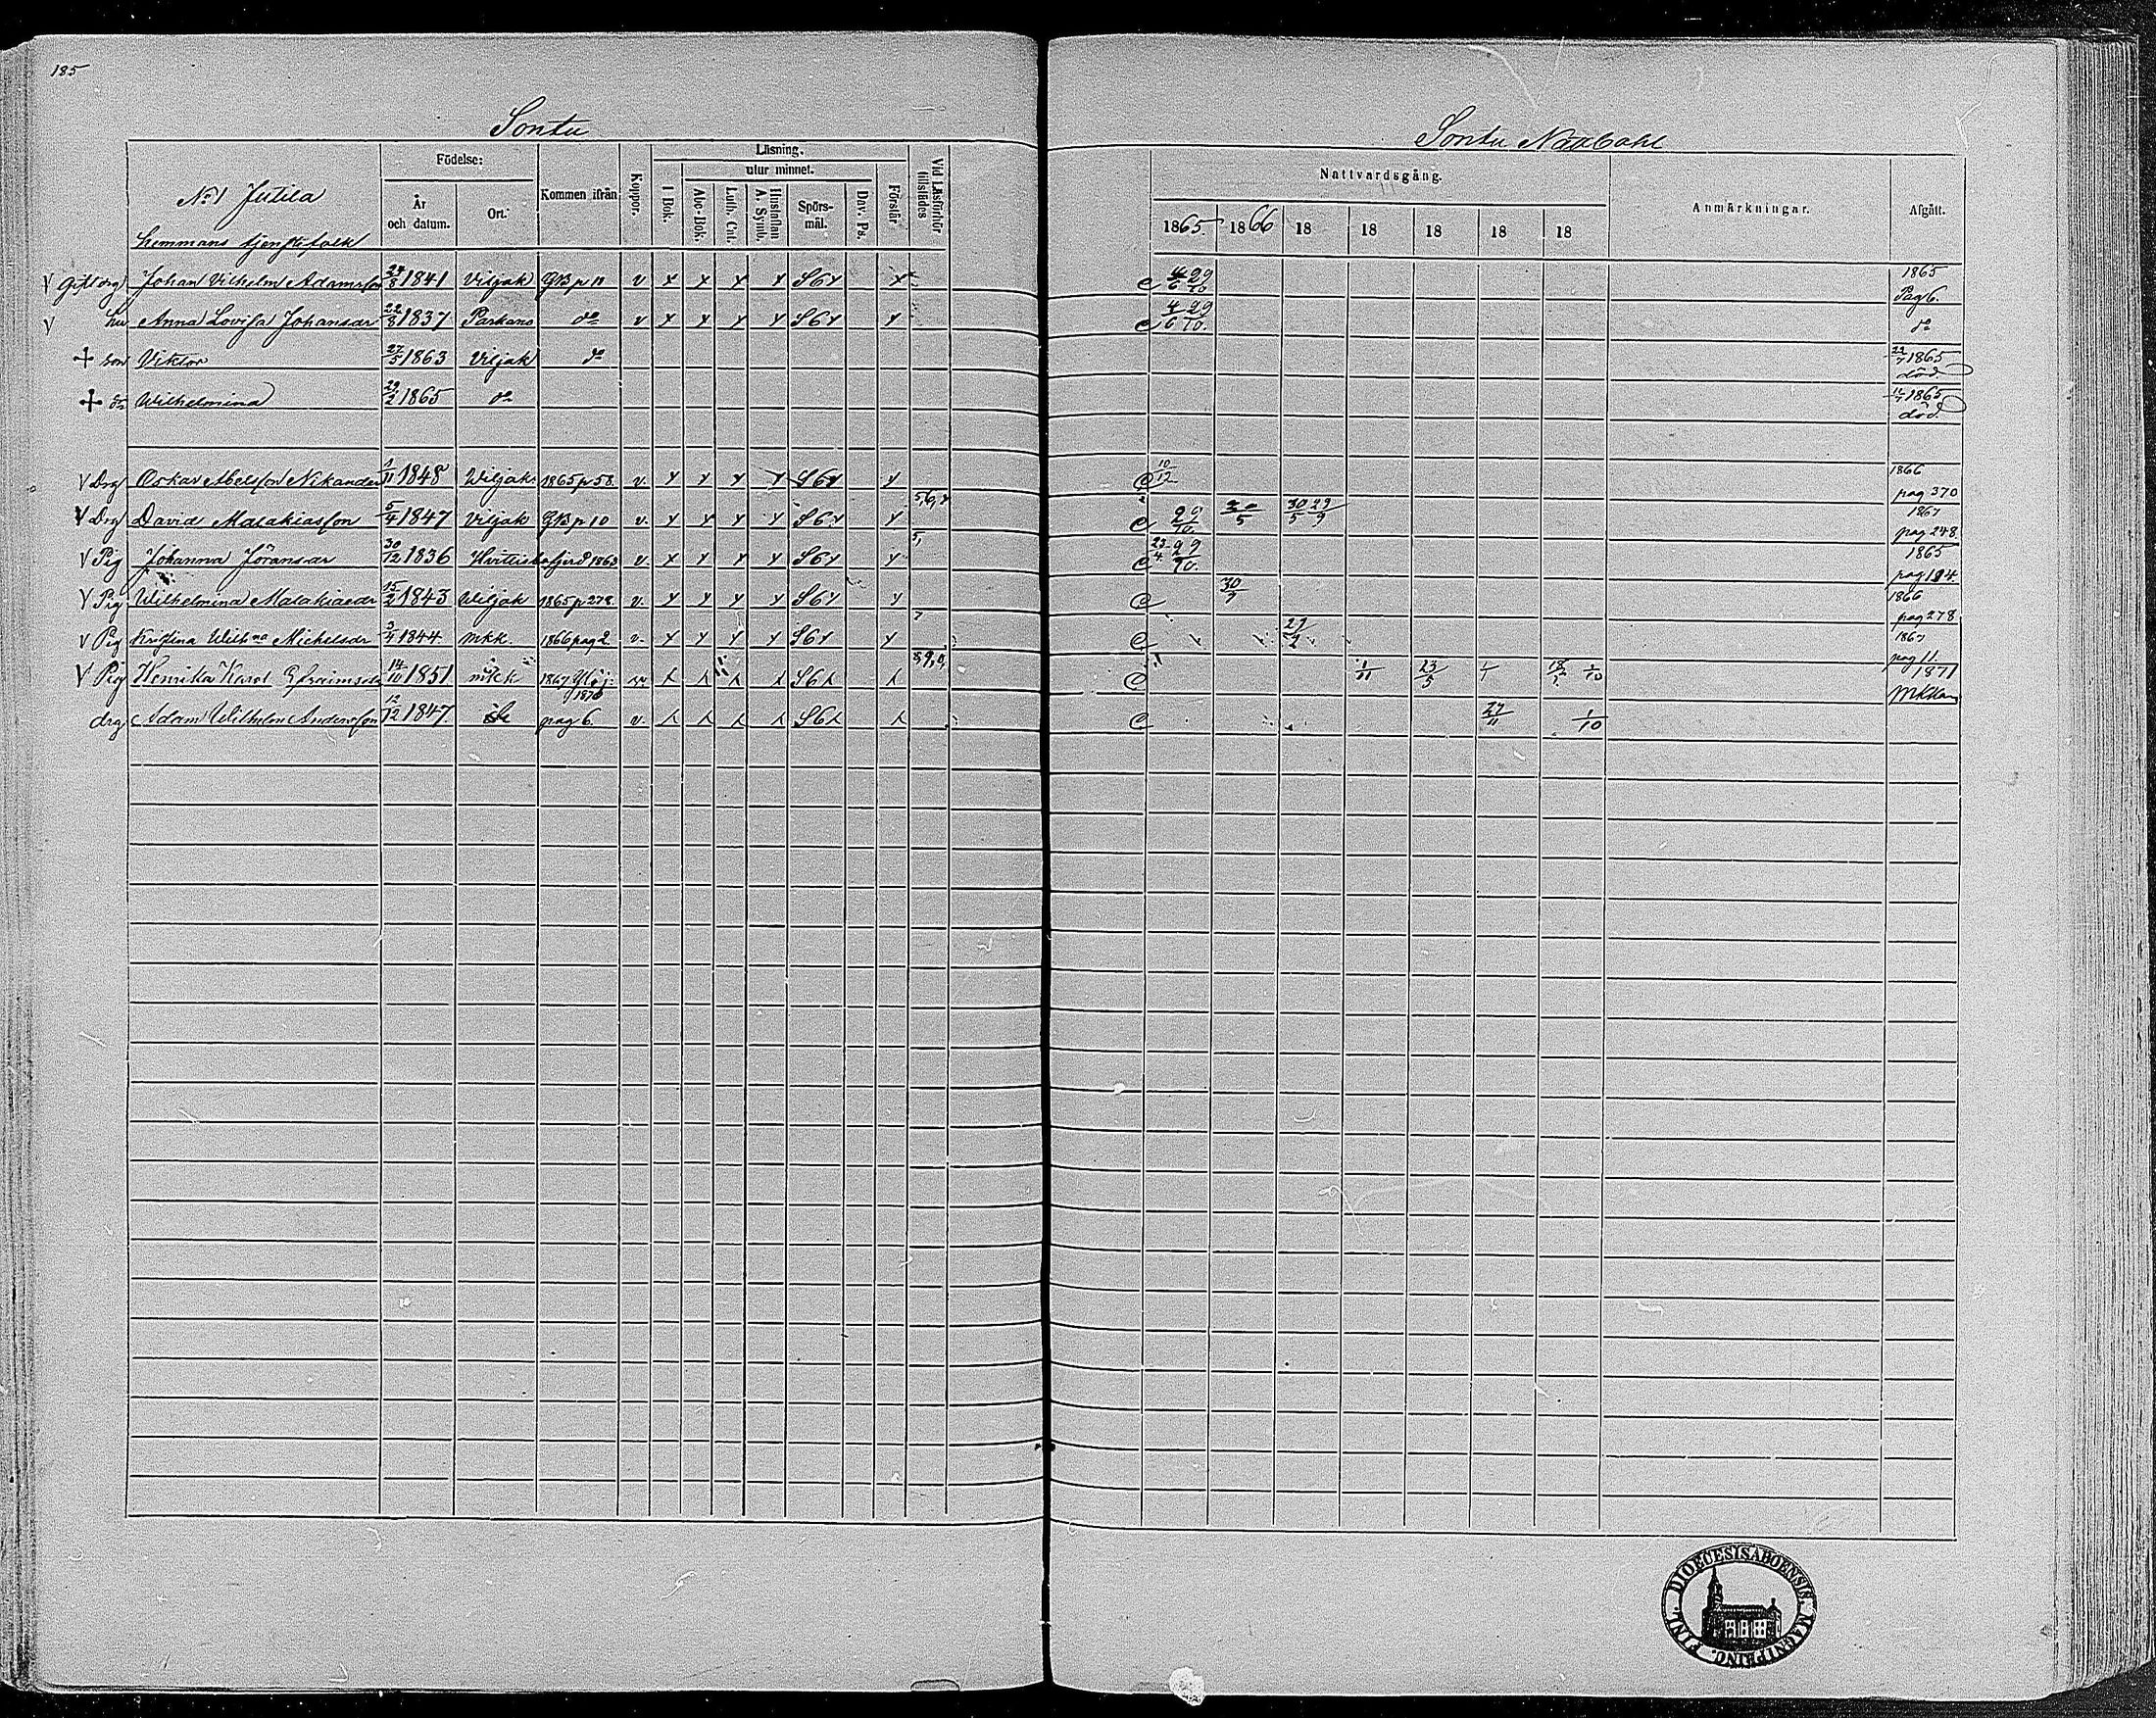 185
Sontu
Sontu
N:o 1 Jutila
hemmans tjenstefolk
Födelse:
År och datum.
Ort.
Kommen ifrån
Koppor.
Läsning.
utur minnet.
I Bok.
Abc-Bok.
Luth. Cat.
Hustaflan A. Symb.
Spörs-mål.
Dav. Ps.
Förstår
Vid Läsförhör tillstädes
Nattvardsgång.
1865. 1866 18 18 18 18 18
Anmärkningar.
Afgått.
V Gift drg Johan Vilhelm Adamsson 24/8 1841 Viljak GB p 11 v S6 4/6 29/10 1865 Pag 6.
V hu Anna Lovisa Johansdr 22/8 1837 Parkano do v S6 4/6 29/10. do
son Viktor 27/5 1863 Viljak do 1865 död.
dr Wilhelmina 1865 do 1865 död.
V Drg Oskar Abelsson Nikander 1/11 1848 Wiljak 1865 p 58. v. S6 10/12 1866 pag 370
V Drg David Malakiasson 5/4 1847 Viljak GB p 10 v. S6 5,6,7 29/10. 30/5 30/5 29/9 1867 pag 248
V Pig Johanna Göransdr 30/12 1836 1863 v. S6 5, 23/4 29/10. 1865 pag 184
V Pig Wilhelmina Malakiasdr 15/2 1843 Wiljak 1865 p 278. v. S6 1866 pag 278
V Pig Kristina Wilh:na Michelsdr 3/4 1844. Mkk. 1866 pag 2 v. S6 7 1867 pag 11
V Pig Henrika Karol. Efraimsdr 14/10 1851 Mkk 1867 S6 1/11 23/5 1/10 1871
drg Adam Wilhelm Andersson 12/12 1847 1870 pag 6. v. S6 27/11 1/10
DIOECESIS ABOENSIS. MAGNI PRINC. FINL.